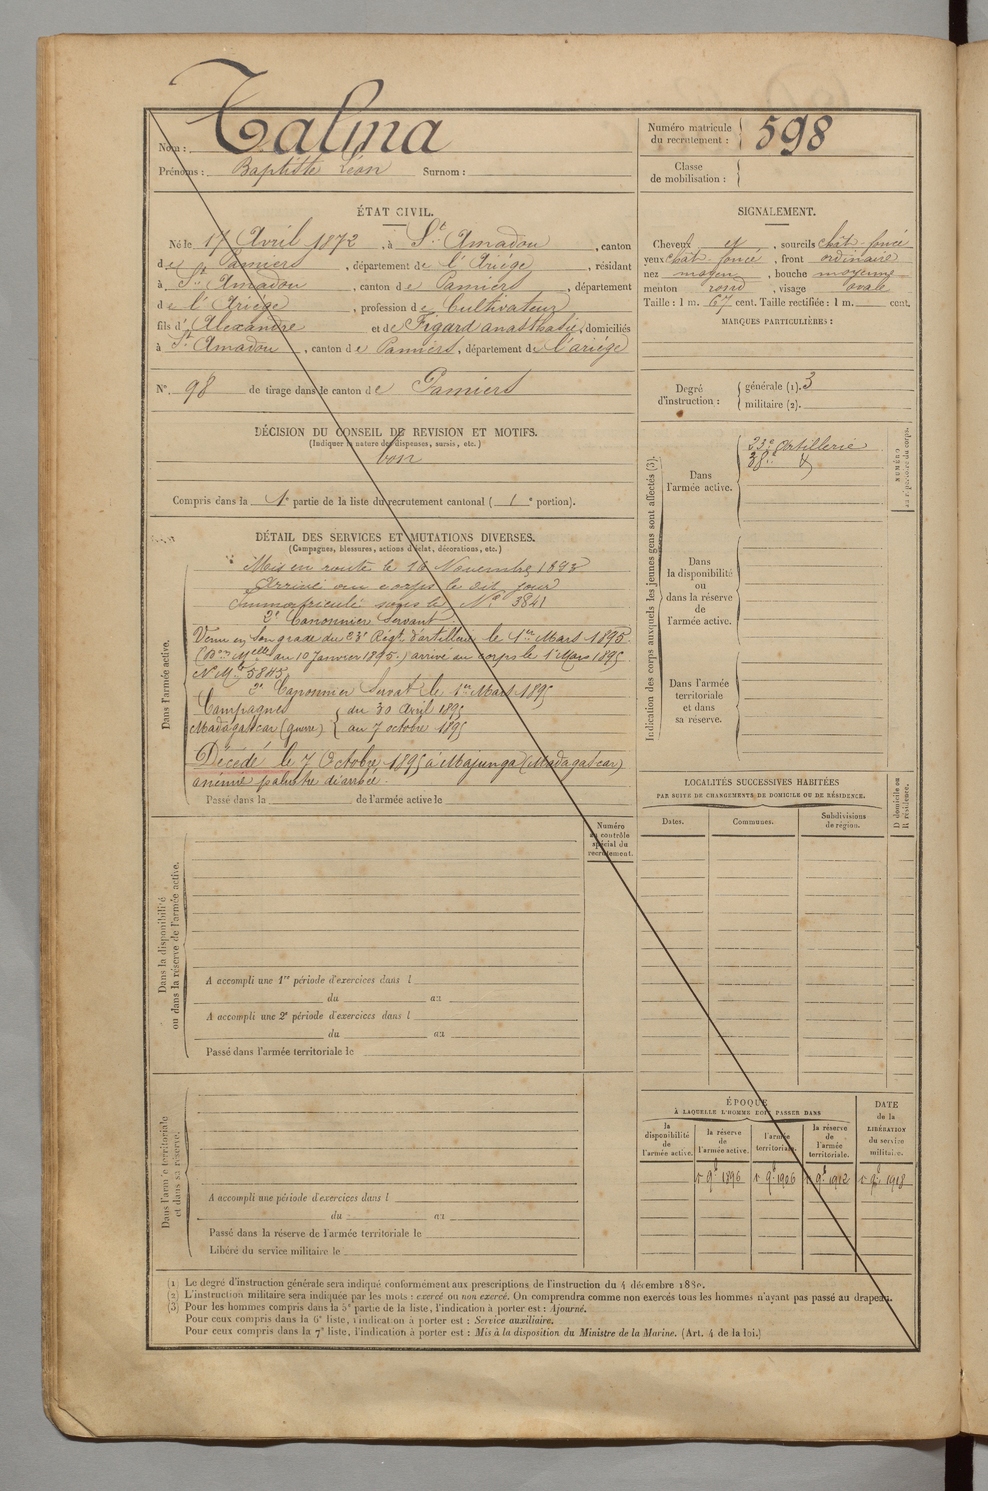 Nom : Talma
Prénoms : Baptiste Léon Surnom :
Numéro matricule du recrutement : 598
Classe de mobilisation :
ÉTAT CIVIL.
Né le 17 Avril 1872, à St Amadou, canton
de Pamiers, département de l'Ariége, résidant
à St Amadou, canton de Pamiers, département
de l'Ariége, profession de Cultivateur
fils d'Alexandre et de Figard anasthasie, domiciliés
à St Amadou, canton de Pamiers, département de l'ariége
N° 98 de tirage dans le canton de Pamiers
SIGNALEMENT.
Cheveux et, sourcils chât-foncé
yeux chât foncé, front ordinaire
nez moyen, bouche moyenne
menton rond, visage ovale
Taille : 1 m. 67 cent. Taille rectifiée : 1 m. cent.
MARQUES PARTICULIÈRES :
Degré d'instruction : générale (1). 3
militaire (2).
DÉCISION DU CONSEIL DE REVISION ET MOTIFS.
(Indiquer la nature des dispenses, sursis, etc.)
bon
Compris dans la 1e partie de la liste du recrutement cantonal ( 1e portion).
DÉTAIL DES SERVICES ET MUTATIONS DIVERSES.
(Campagnes, blessures, actions d'éclat, décorations, etc.)
Dans l'armée active.
Mis en route le 16 Novembre 1893
Arrivé au corps le dit jour
Immatriculé sous le No 3841
2e Canonnier Servant.
Venu en son grade du 23e Régt d'artillerie le 1er Mars 1895
du 10 Janvier 1895.) arrivé au corps le 1er Mars 1895
No Mle 5845
2e Canonnier Servat le 1er Mars 1895
Campagnes du 30 Avril 1895
Madagascar (guerre) au 7 octobre 1895
Décédé le 7 Octobre 1895 à Majunga (Madagascar)
anémie palustre diarrhée.
Passé dans la de l'armée active le
Indication des corps auxquels les jeunes gens sont affectés (3).
NUMÉRO au répertoire du corps.
Dans l'armée active.
23e Artillerie
38e
Dans la disponibilité ou dans la réserve de l'armée active.
Dans l'armée territoriale et dans sa réserve.
LOCALITÉS SUCCESSIVES HABITÉES
PAR SUITE DE CHANGEMENTS DE DOMICILE OU DE RÉSIDENCE.
Dates. Communes. Subdivisions de région.
D domicile ou R résidence.
Dans la disponibilité ou dans la réserve de l'armée active.
Numéro au contrôle spécial du recrutement.
A accompli une 1re période d'exercices dans l
du au
A accompli une 2e période d'exercices dans l
du au
Passé dans l'armée territoriale le
Dans l'armée territoriale et dans sa réserve.
A accompli une période d'exercices dans l
du au
Passé dans la réserve de l'armée territoriale le
Libéré du service militaire le
ÉPOQUE
À LAQUELLE L'HOMME DOIT PASSER DANS
la disponibilité de l'armée active.
la réserve de l'armée active.
l'armée territoriale.
la réserve de l'armée territoriale.
DATE de la LIBÉRATION du service militaire.
1r 9b 1896 1r 9b 1906 1r 9b 1912 1r 9b 1918
(1) Le degré d'instruction générale sera indiqué conformément aux prescriptions de l'instruction du 4 décembre 1889.
(2) L'instruction militaire sera indiquée par les mots : exercé ou non exercé. On comprendra comme non exercés tous les hommes n'ayant pas passé au drapeau.
(3) Pour les hommes compris dans la 5e partie de la liste, l'indication à porter est : Ajourné.
Pour ceux compris dans la 6e liste, l'indication à porter est : Service auxiliaire.
Pour ceux compris dans la 7e liste, l'indication à porter est : Mis à la disposition du Ministre de la Marine. (Art. 4 de la loi.)